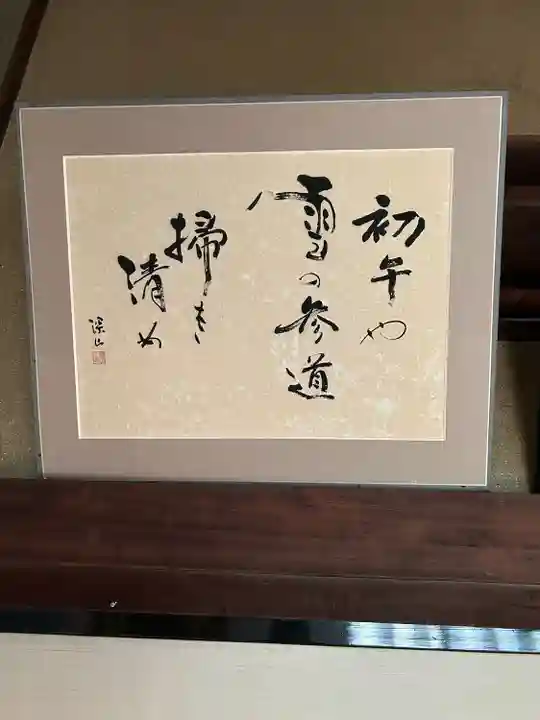 初午や
雪の参道
掃き
清め
深山